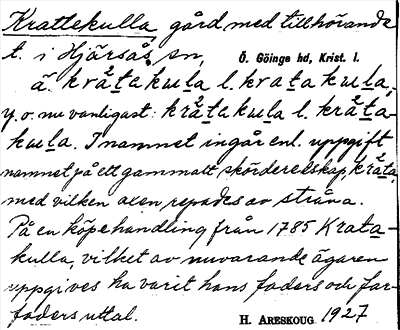 Krattekulla, gård med tillhörande
t. i Hjärsås sn, Ö. Göinge hd, Krist. l.
ä. krå̊takula l. kratakula,
y. o. nu vanligast: krå̊takula l. krå̊ta-
kula. I namnet ingår enl. uppgift
namnet på ett gammalt skörderedskap, krå̊ta,
med vilken axen repades av stråna.
På en köpehandling från 1785 Krata-
kulla, vilket av nuvarande ägaren
uppgives ha varit hans faders och far-
faders uttal. H. ARESKOUG 1927